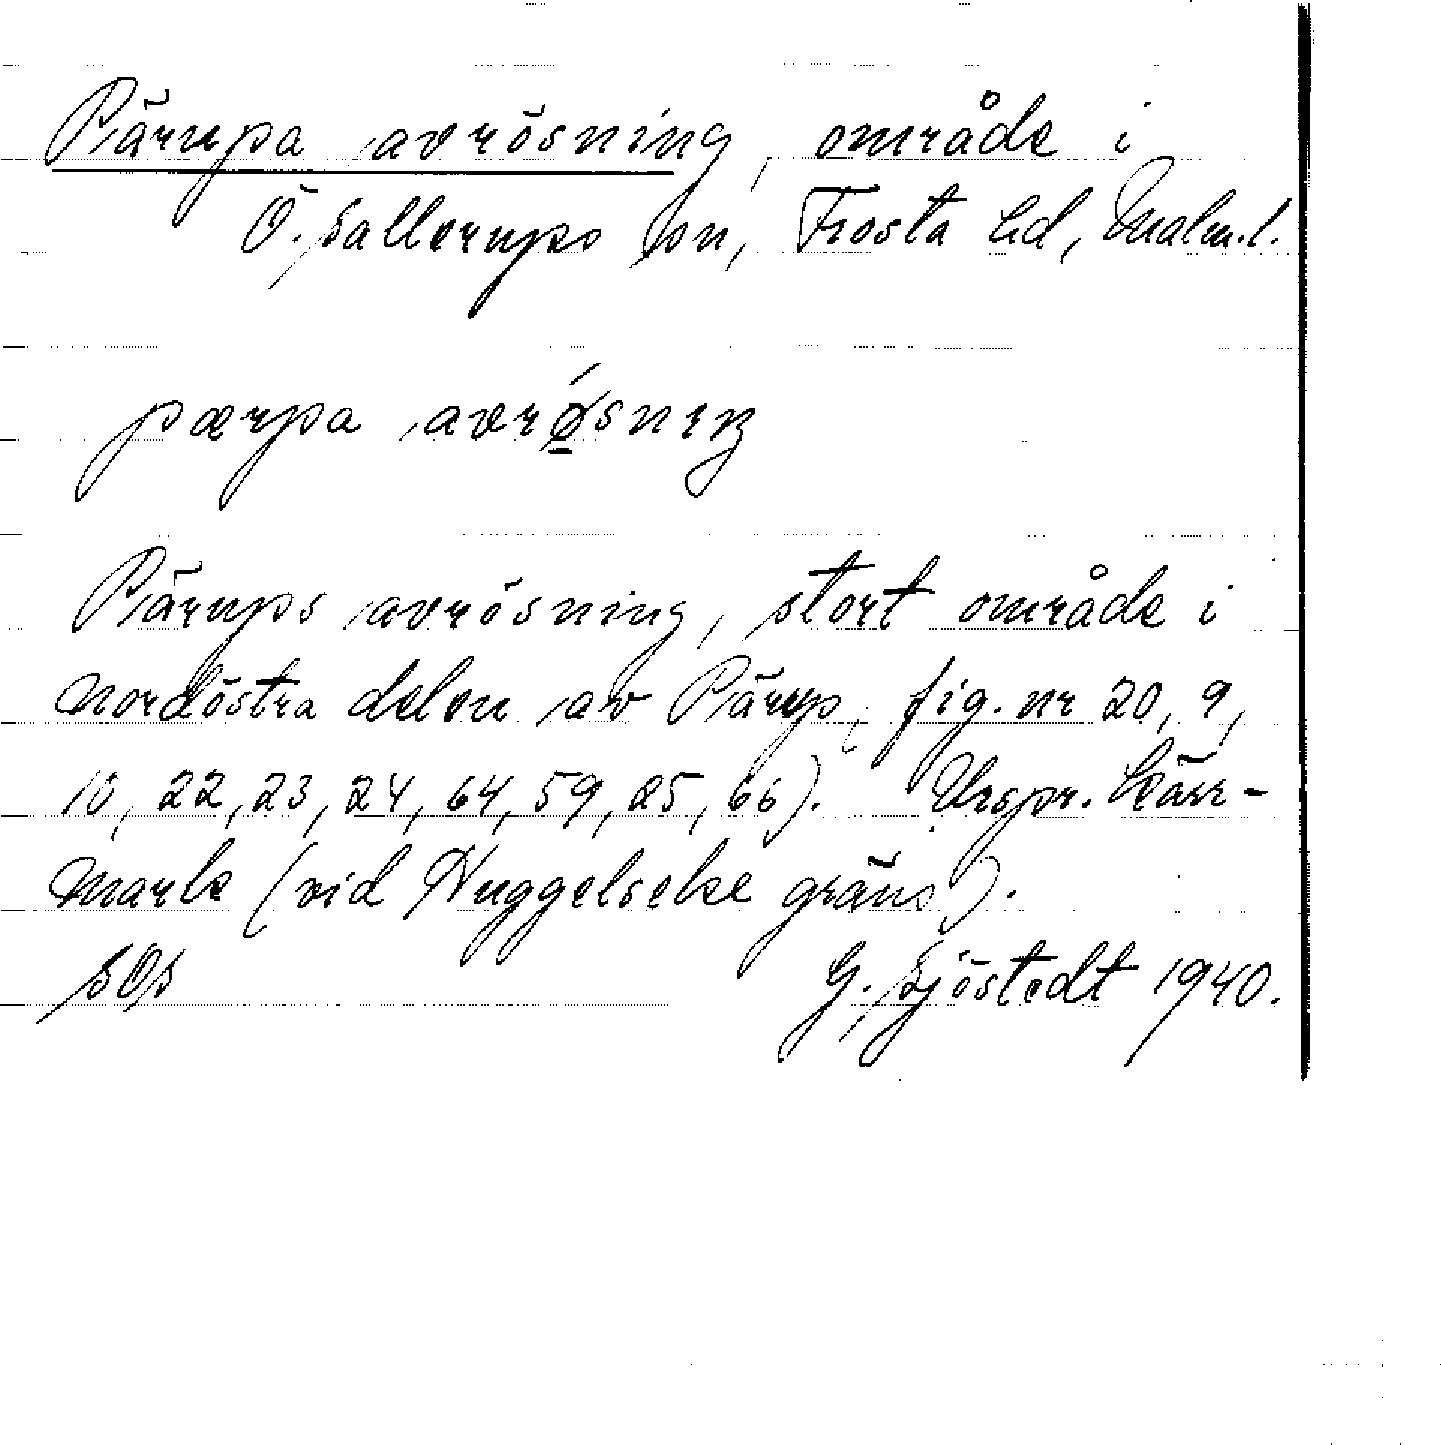 Pärupa avrösning, område i
Ö. Sallerups sn, Frosta hd, Malm.l.
pærpa avrǿ̠snıŋ
Pärups avrösning, stort område i
nordöstra delen av Pärup, fig. nr 20, 9,
10, 22, 23, 24, 64, 59, 25, 66). Urspr. kärr-
mark (vid Huggelseke gräns).
G. Sjöstedt 1940.